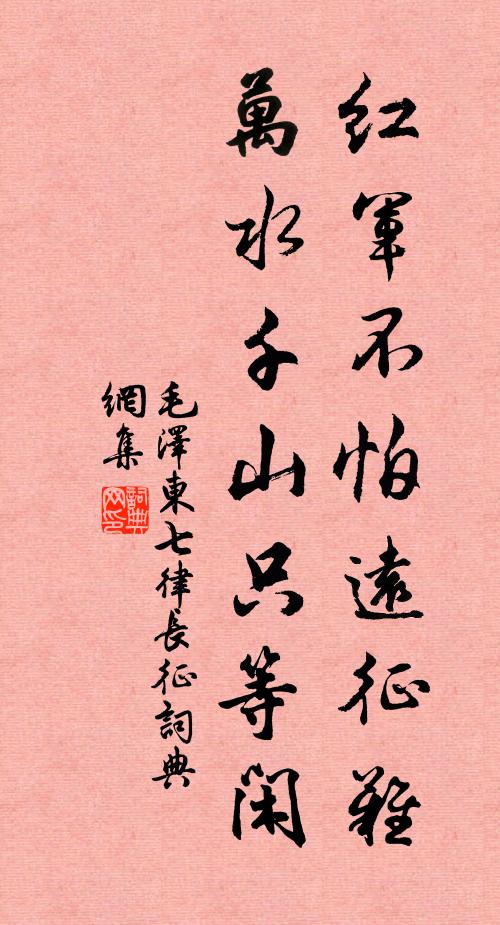 紅軍不怕遠征難
萬水千山只等閑
毛澤東七律長征詞典
網集
詞典
网印